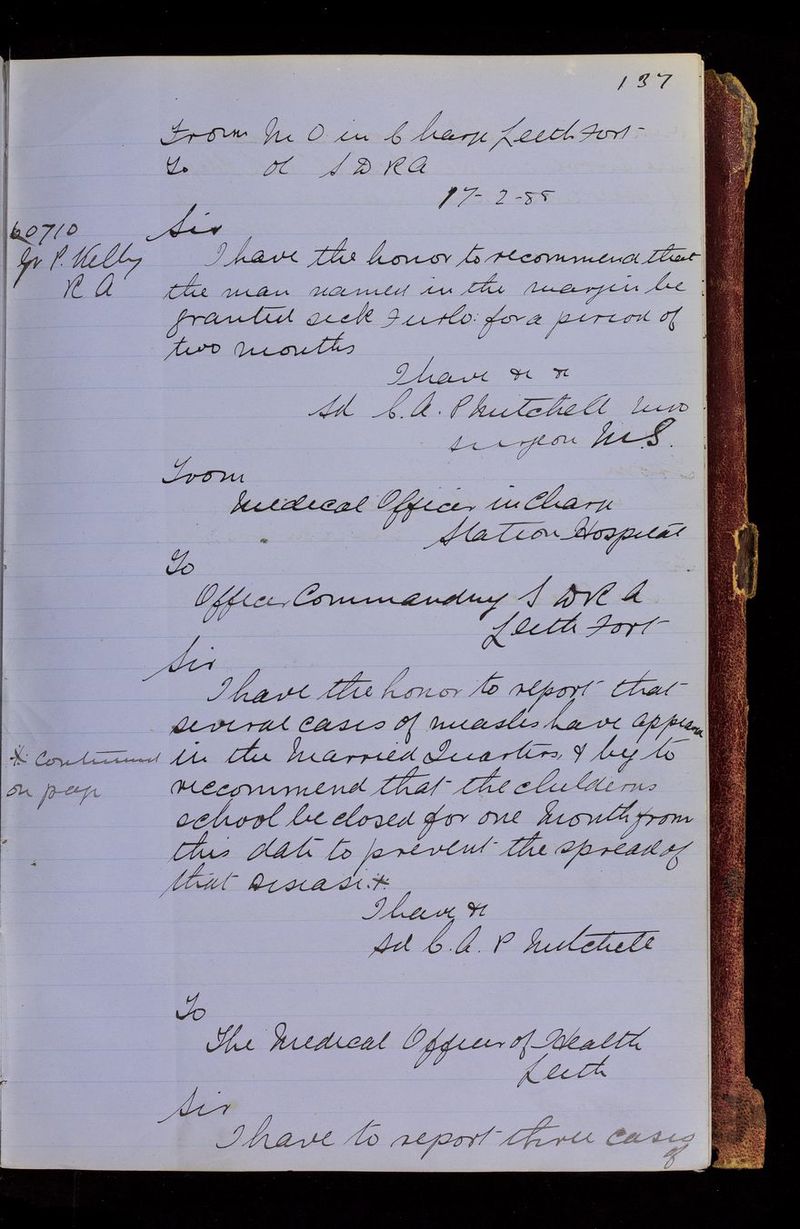 137
From M O in Charge Leith Fort
To OC S D R A
17-2-88
60710
Gr P. Kelly
R A
Sir
I have the honor to recommend that
the man named in the margin be
granted sick Furlo: for a period of
two months
I have &c &c
Sd C. A. P Mitchell
surgeon M.S.
From
Medical Officer in Charge
Station Hospital
To
Officer Commanding S D R A
Leith Fort
Sir
I have the honor to report that
several cases of measles have appeared
* Continued
on page
in the Married Quarters, & beg to
reccommend that the childerns
school be closed for one Month from
this date to prevent the spread of
that disease.*
I have &c
Sd C. A. P Mitchell
To
The Medical Officer of Health
Leith
Sir
I have to report three cases
of